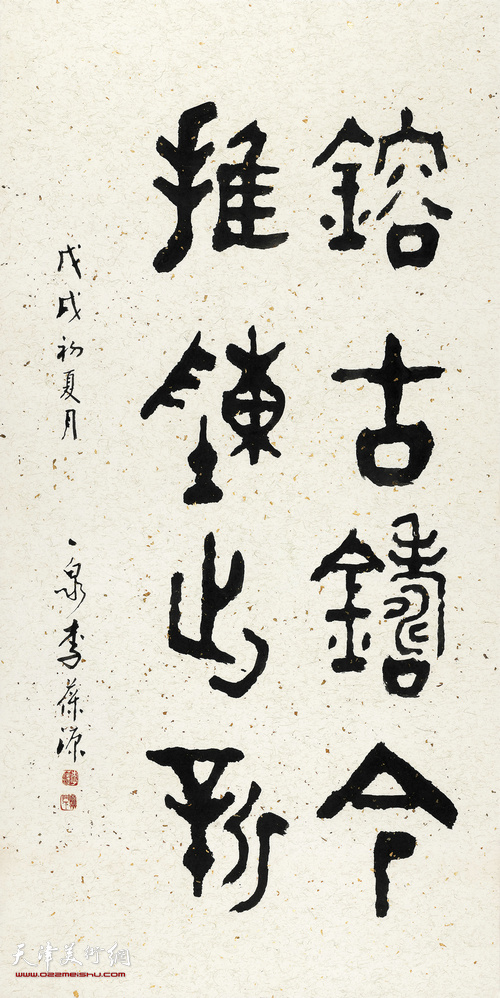 鎔古鑄今
推陳出新
戊戌初夏月 一泉李葆源
天津美術網
www.022meishu.com